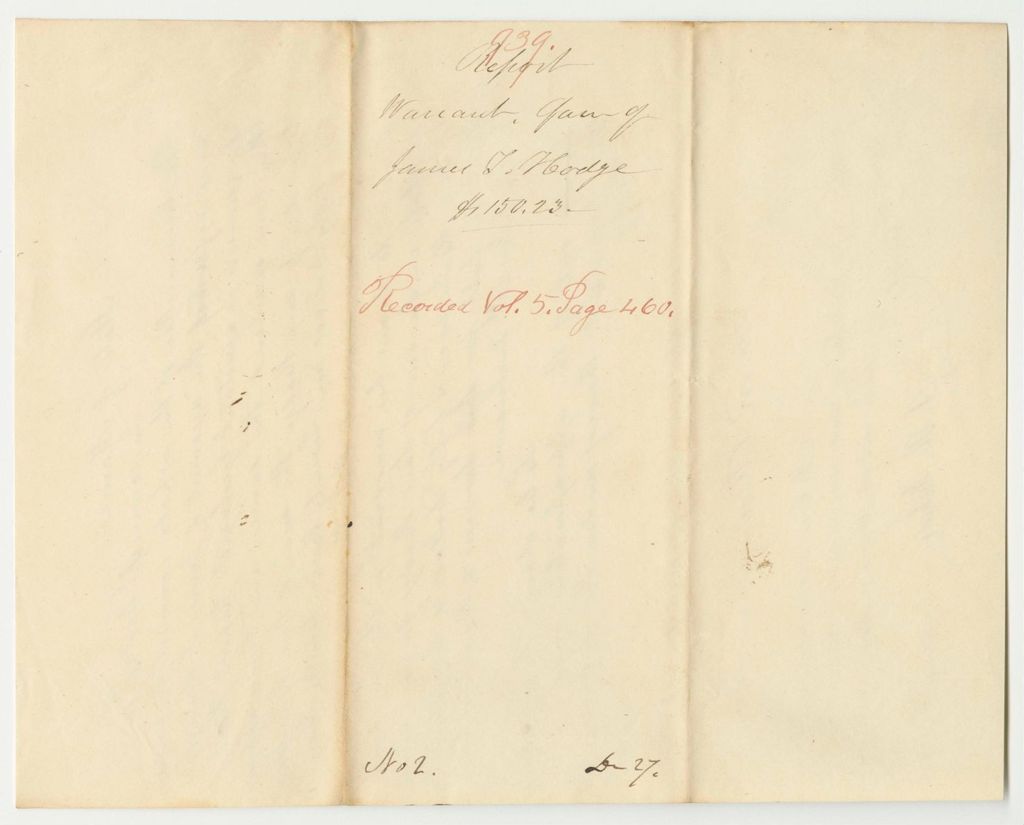 939.
Report
Warrant, favr of
James T. Hodge
$150.23-
Recorded Vol. 5. Page 460.
No 2. De 27.